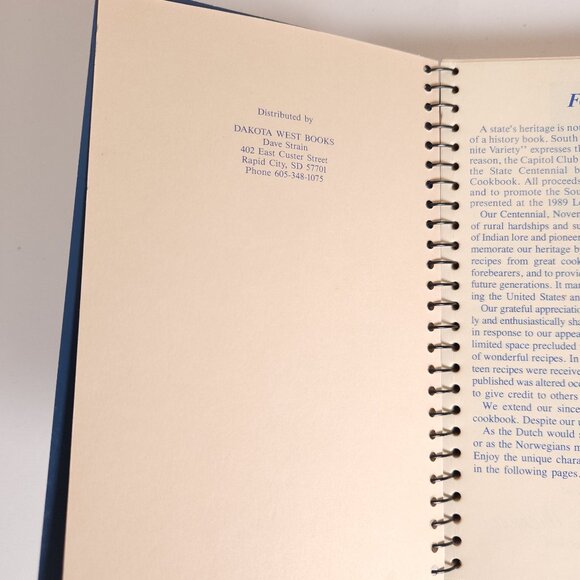 Distributed by
DAKOTA WEST BOOKS
Dave Strain
402 East Custer Street
Rapid City, SD 57701
Phone 605-348-1075
A state's heritage is no
of a history book. South
nite Variety" expresses th
reason, the Capitol Club
the State Centennial b
Cookbook. All proceed
and to promote the Sou
presented at the 1989 Le
Our Centennial, Novem
of rural hardships and su
of Indian lore and pioneer
memorate our heritage b
recipes from great cook
forebearers, and to provid
future generations. It mar
ing the United States and
Our grateful appreciation
ly and enthusiastically sha
in response to our appea
limited space precluded
of wonderful recipes. In
teen recipes were receive
published was altered occ
to give credit to others
We extend our since
cookbook. Despite our u
As the Dutch would
or as the Norwegians m
Enjoy the unique chara
in the following pages.